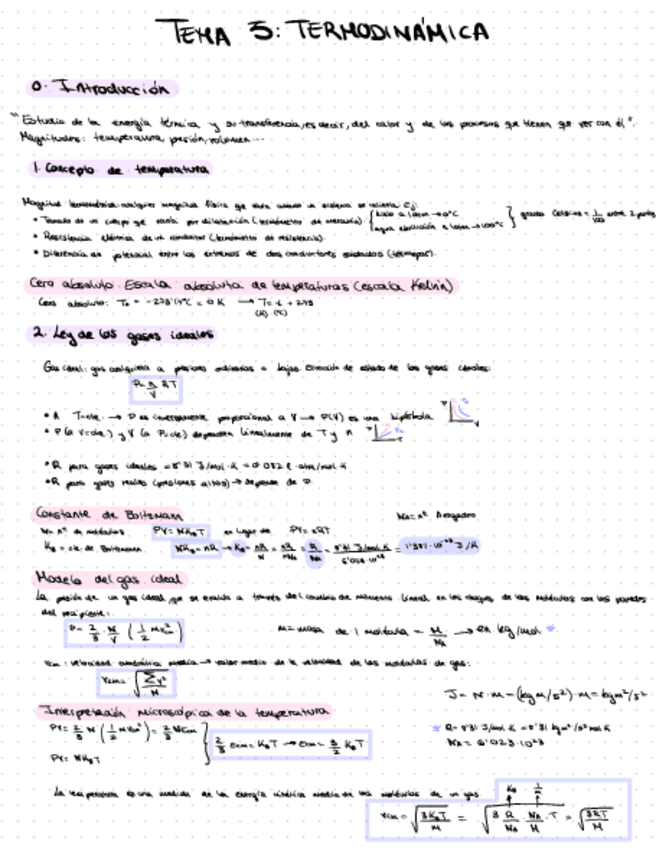 TEMA 5: TERMODINÁMICA
0. Introducción
"Estudio de la energía térmica y su transferencia, es decir, del calor y de los procesos que tienen que ver con él".
Magnitudes: temperatura, presión, volumen...
1. Concepto de temperatura
Magnitud termométrica: cualquier magnitud física que varía cuando un sistema se calienta. Ej:
• Tamaño de un cuerpo que varía por dilatación (termómetro de mercurio) { hielo a 1 atm → 0°C
agua ebullición a 1 atm → 100°C } grado Celsius = 1/100 entre 2 puntos
• Resistencia eléctrica de un conductor (termómetro de resistencia).
• Diferencia de potencial entre los extremos de dos conductores soldados (termopar).
Cero absoluto. Escala absoluta de temperaturas (escala Kelvin)
Cero absoluto: T₀ = -273'15°C = 0 K → T = t + 273
(K) (°C)
2. Ley de los gases ideales
Gas ideal: gas cualquiera a presiones ordinarias o bajas. Ecuación de estado de los gases ideales:
P = n/V RT
• A T=cte. → P es inversamente proporcional a V → P(V) es una hipérbola
P V
• P (a V=cte.) y V (a P=cte.) dependen linealmente de T y n
• R para gases ideales = 8'31 J/mol·K = 0'082 l·atm/mol·K
• R para gases reales (presiones altas) → depende de P.
Constante de Boltzmann
N_A = nº Avogadro
N = nº de moléculas PV = NK_BT en lugar de PV = nRT
K_B = cte. de Boltzmann NK_B = nR → K_B = nR/N = nR/nN_A = R/N_A = 8'31 J/mol·K / 6'023·10²³ = 1'381·10⁻²³ J/K
Modelo del gas ideal
La presión de un gas ideal que se evalúa a través del cambio de momento lineal en los choques de las moléculas con las paredes
del recipiente:
P = 2/3 N/V (1/2 m v_cm²) m = masa de 1 molécula = M/N_A → en kg/mol *
v_cm: velocidad cuadrática media → valor medio de la velocidad de las moléculas de gas:
v_cm = √(Σv²/N)
J = N·m = (kg m/s²)·m = kg m²/s²
Interpretación microscópica de la temperatura
PV = 2/3 N (1/2 m v_cm²) = 2/3 N E_cm
PV = NK_BT
2/3 E_cm = K_BT → E_cm = 3/2 K_BT
* R = 8'31 J/mol·K = 8'31 kg m²/s² mol K
N_A = 6'023·10²³
La temperatura es una medida de la energía cinética media de las moléculas de un gas
K_B 1/m
v_cm = √(3K_BT/m) = √(3 R/N_A N_A/M · T) = √(3RT/M)